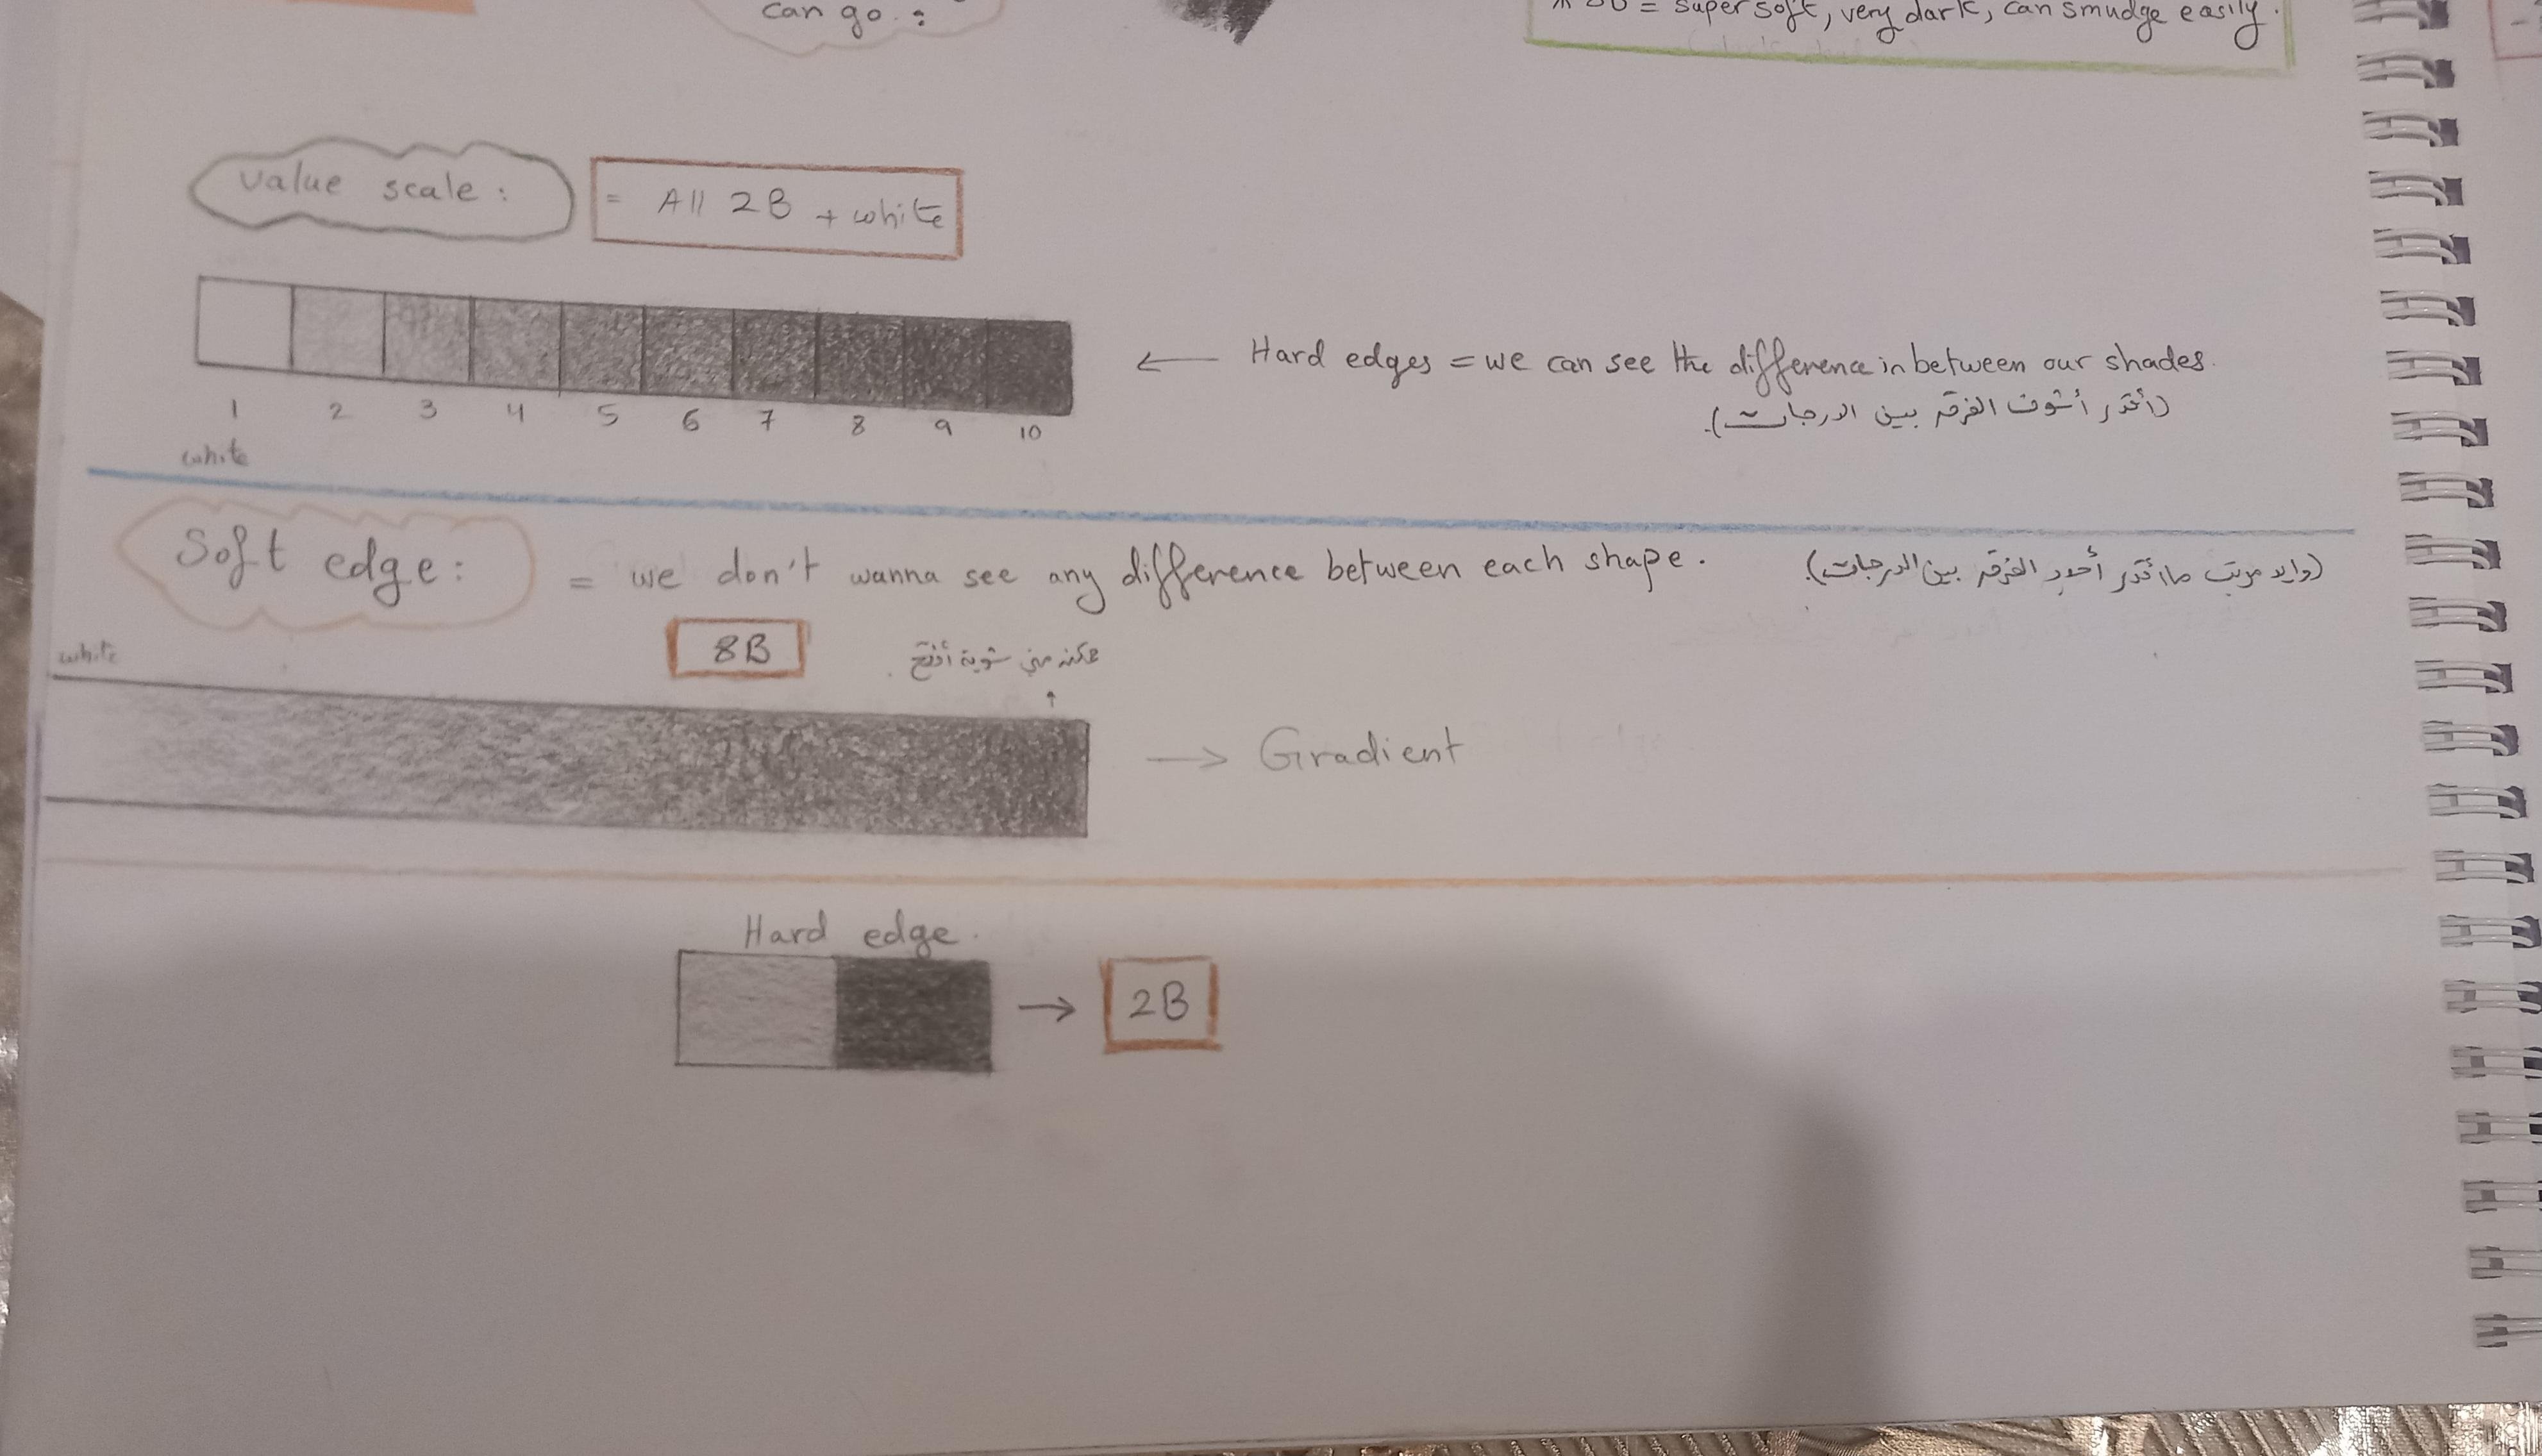 can go :
= super soft, very dark, can smudge easily.
value scale :
= All 2B + white
1 2 3 4 5 6 7 8 9 10
white
← Hard edges = we can see the difference in between our shades.
(أقدر أشوف الفرق بين الدرجات).
Soft edge :
= we don't wanna see any difference between each shape.
(وايد مرتب ما أقدر أحدد الفرق بين الدرجات).
8B
شوية أفتح
↑
white
→ Gradient
Hard edge.
→ 2B